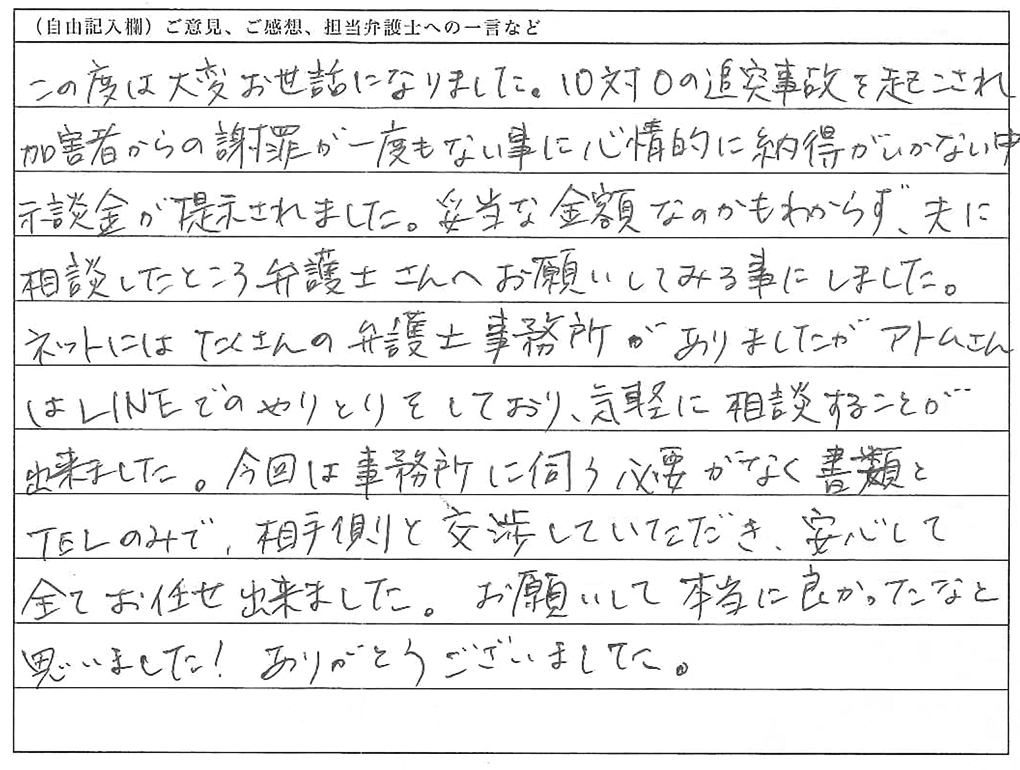 (自由記入欄)ご意見、ご感想、担当弁護士への一言など
この度は大変お世話になりました。10対0の追突事故を起こされ
加害者からの謝罪が一度もない事に心情的に納得がいかない中
示談金が提示されました。妥当な金額なのかもわからず、夫に
相談したところ弁護士さんへお願いしてみる事にしました。
ネットにはたくさんの弁護士事務所がありましたがアトムさん
はLINEでのやりとりをしており、気軽に相談することが
出来ました。今回は事務所に伺う必要がなく書類と
TELのみで、相手側と交渉していただき、安心して
全てお任せ出来ました。お願いして本当に良かったなと
思いました!ありがとうございました。